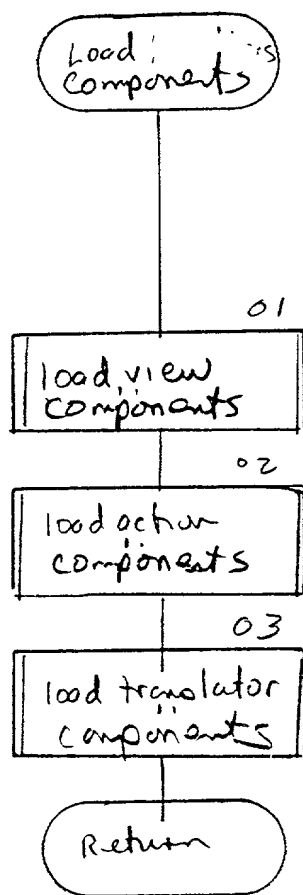 Load
components
01
load view
components
02
load action
components
03
load translator
components
Return